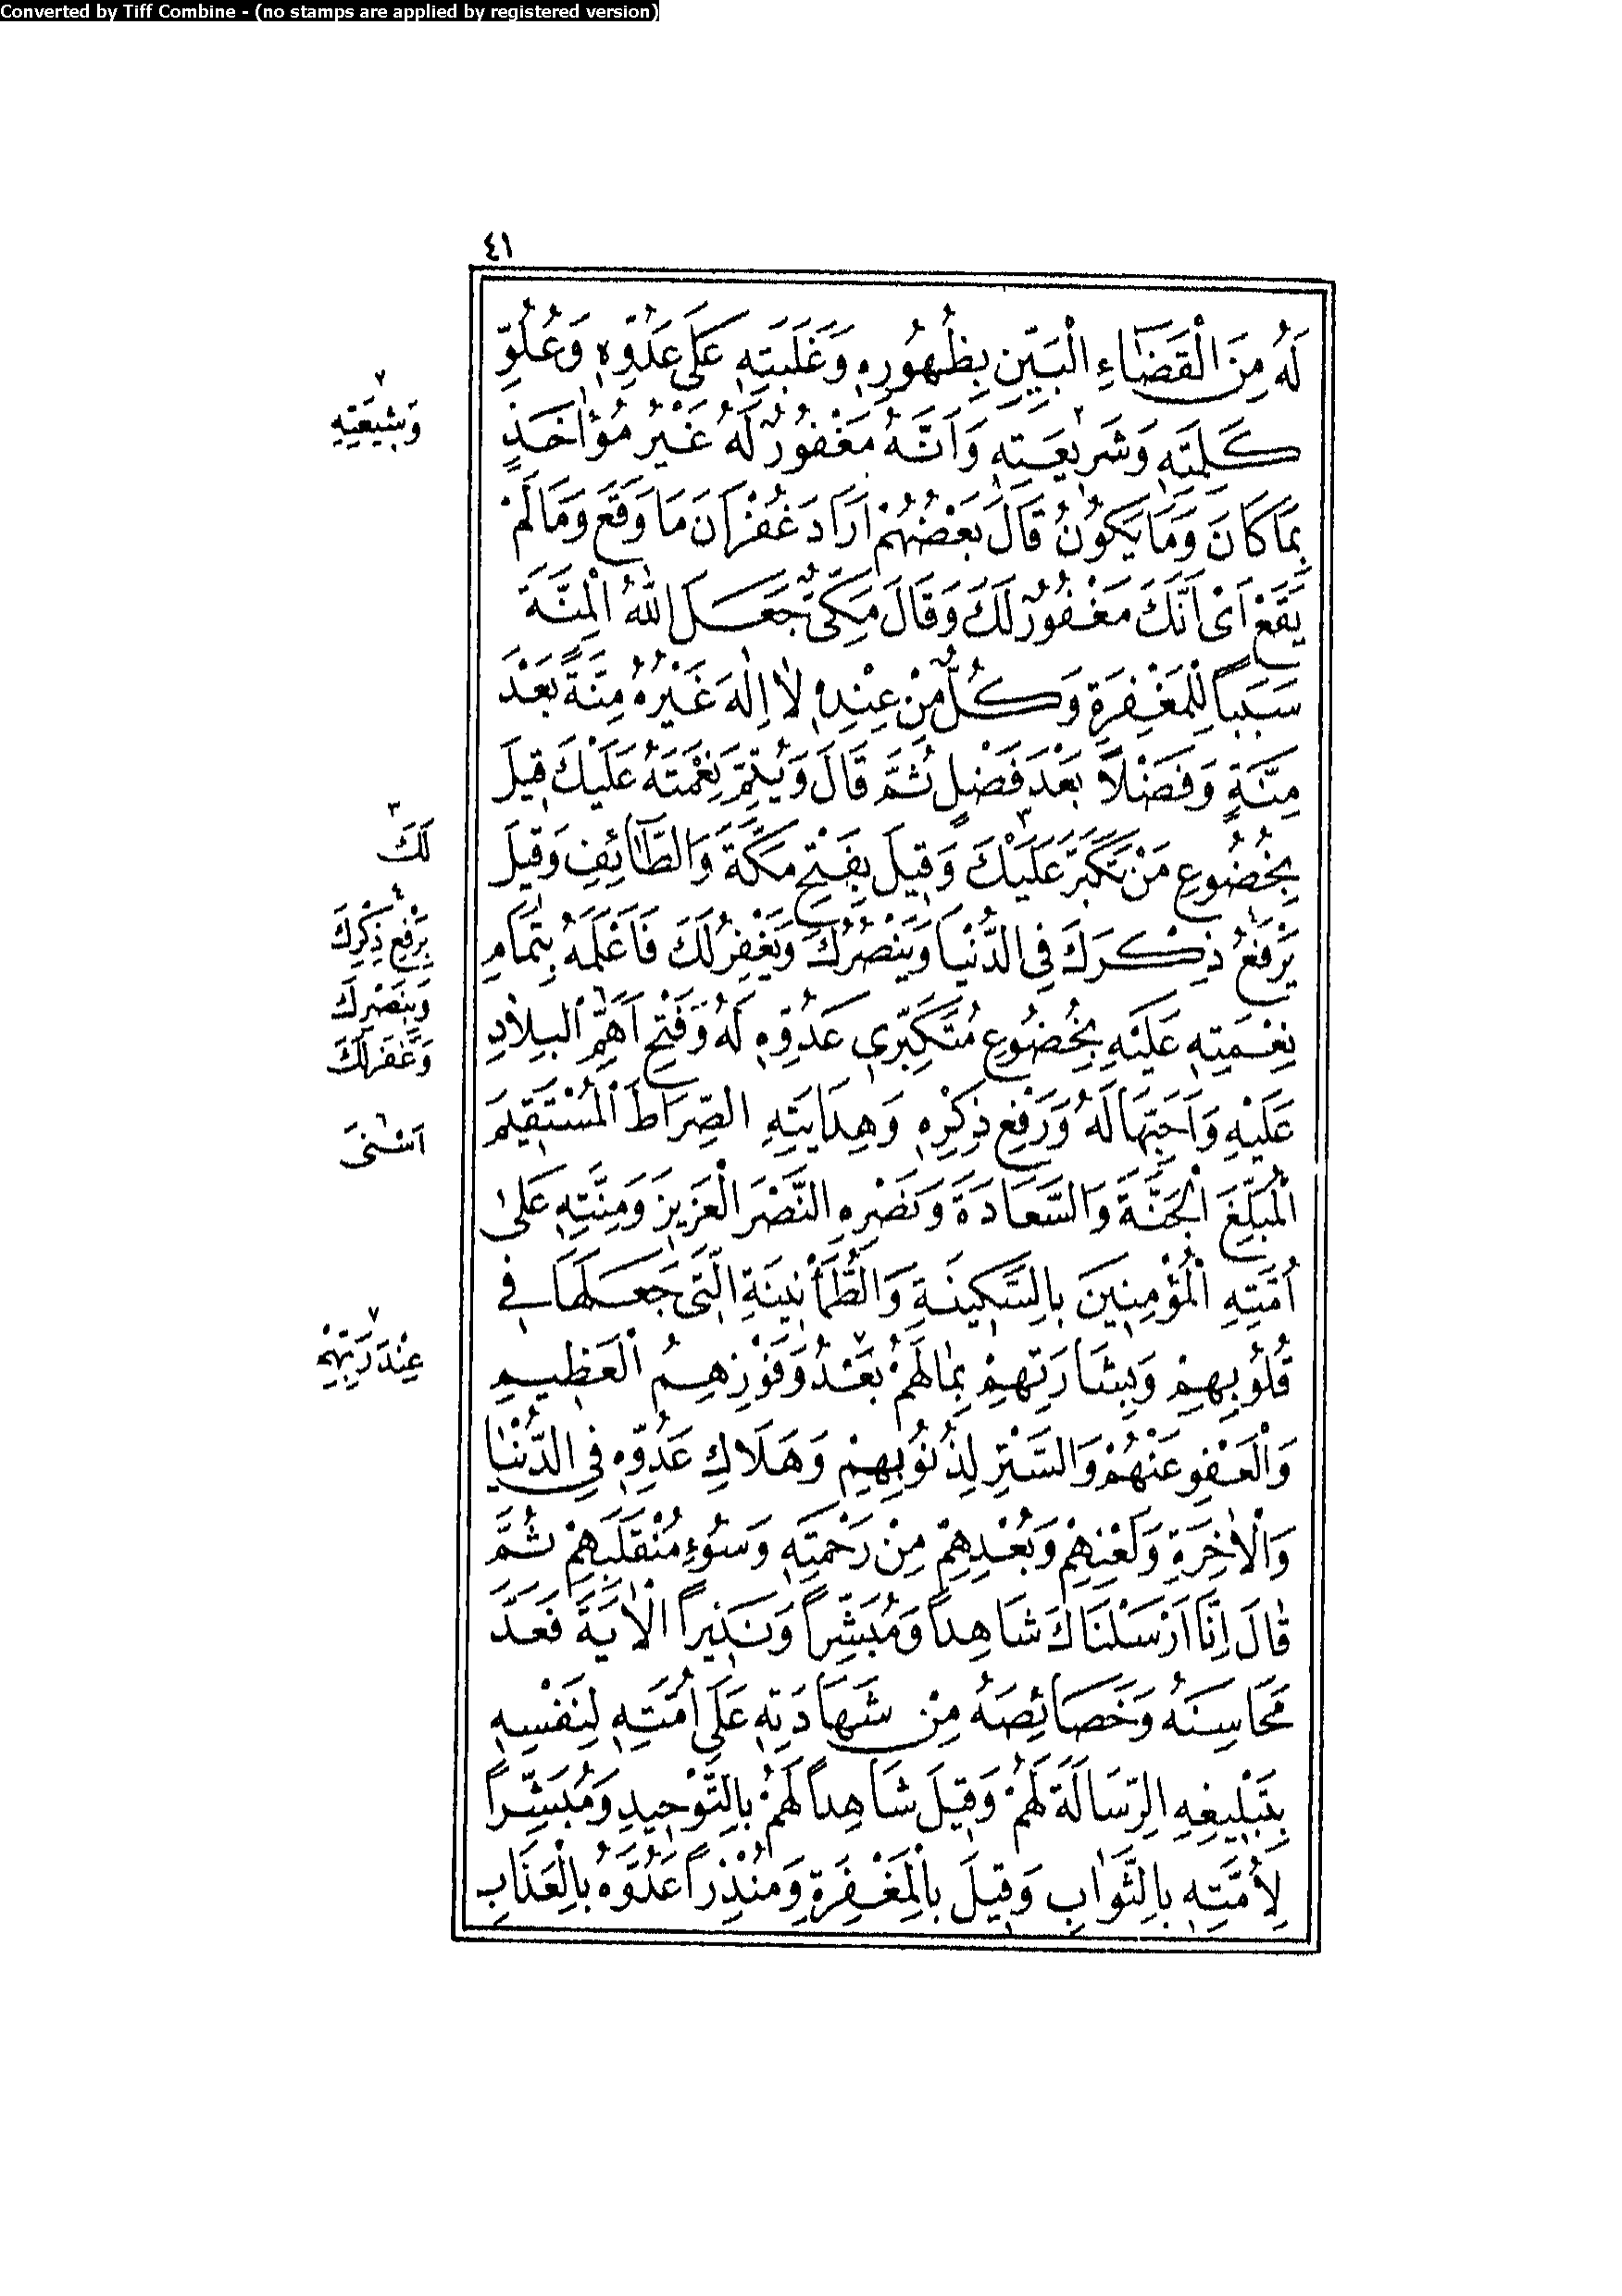 Converted by Tiff Combine - (no stamps are applied by registered version)
٤١
لَهُ مِنَ الْقَضَاءِ الْبَيِّنِ بِظُهُورِهِ وَغَلَبَتِهِ عَلَى عَدُوِّهِ وَعُلُوِّ
كَلِمَتِهِ وَشَرِيعَتِهِ ٢ وَاَنَّهُ مَغْفُورٌ لَهُ غَيْرُ مُؤَاخَذٍ
بِمَا كَانَ وَمَا يَكُونُ قَالَ بَعْضُهُمْ اَرَادَ غُفْرَانَ مَا وَقَعَ وَمَا لَمْ
يَقَعْ اَىْ اَنَّكَ مَغْفُورٌ لَكَ وَقَالَ مَكِّىٌّ جَعَلَ اللّٰهُ الْمِنَّةَ
سَبَبًا لِلْمَغْفِرَةِ وَكُلٌّ مِنْ عِنْدِهِ لَا اِلٰهَ غَيْرُهُ مِنَّةً بَعْدَ
مِنَّةٍ وَفَضْلًا بَعْدَ فَضْلٍ ثُمَّ قَالَ وَيُتِمَّ نِعْمَتَهُ عَلَيْكَ قِيلَ
بِخُضُوعِ مَنْ تَكَبَّرَ عَلَيْكَ ٣ وَقِيلَ بِفَتْحِ مَكَّةَ وَالطَّائِفِ وَقِيلَ
يَرْفَعُ ذِكْرَكَ فِى الدُّنْيَا وَيَنْصُرُكَ وَيَغْفِرُ لَكَ فَاَعْلَمَهُ بِتَمَامِ
نِعْمَتِهِ عَلَيْهِ بِخُضُوعِ مُتَكَبِّرِى عَدُوِّهِ لَهُ وَفَتْحِ اَهَمِّ الْبِلَادِ
عَلَيْهِ وَاَحَبِّهَا لَهُ وَرَفْعِ ذِكْرِهِ وَهِدَايَتِهِ الصِّرَاطَ الْمُسْتَقِيمَ
الْمُبَلِّغَ الْجَنَّةَ وَالسَّعَادَةَ وَنَصْرِهِ النَّصْرَ الْعَزِيزَ وَمِنَّتِهِ عَلٰى
اُمَّتِهِ الْمُؤْمِنِينَ بِالسَّكِينَةِ وَالطُّمَأْنِينَةِ الَّتِى جَعَلَهَا فِى
قُلُوبِهِمْ وَبِشَارَتِهِمْ بِمَا لَهُمْ بَعْدُ ٧ وَفَوْزِهِمُ الْعَظِيمِ
وَالْعَفْوِ عَنْهُمْ وَالسَّتْرِ لِذُنُوبِهِمْ وَهَلَاكِ عَدُوِّهِ فِى الدُّنْيَا
وَالْاٰخِرَةِ وَلَعْنِهِمْ وَبُعْدِهِمْ مِنْ رَحْمَتِهِ وَسُوءِ مُنْقَلَبِهِمْ ثُمَّ
قَالَ اِنَّا اَرْسَلْنَاكَ شَاهِدًا وَمُبَشِّرًا وَنَذِيرًا الْاٰيَةَ فَعَدَّ
مَحَاسِنَهُ وَخَصَائِصَهُ مِنْ شَهَادَتِهِ عَلَى اُمَّتِهِ لِنَفْسِهِ
بِتَبْلِيغِهِ الرِّسَالَةَ لَهُمْ وَقِيلَ شَاهِدًا لَهُمْ بِالتَّوْحِيدِ وَمُبَشِّرًا
لِاُمَّتِهِ بِالثَّوَابِ وَقِيلَ بِالْمَغْفِرَةِ وَمُنْذِرًا عَدُوَّهُ بِالْعَذَابِ
٢
وَشِيعَتِهِ
٣
لَكَ
٤
يَرْفَعِ ذِكْرِكَ
وَيَنْصُرِكَ
وَغَفَرَ لَكَ
اَسْنٰى
٧
عِنْدَ رَبِّهِمْ